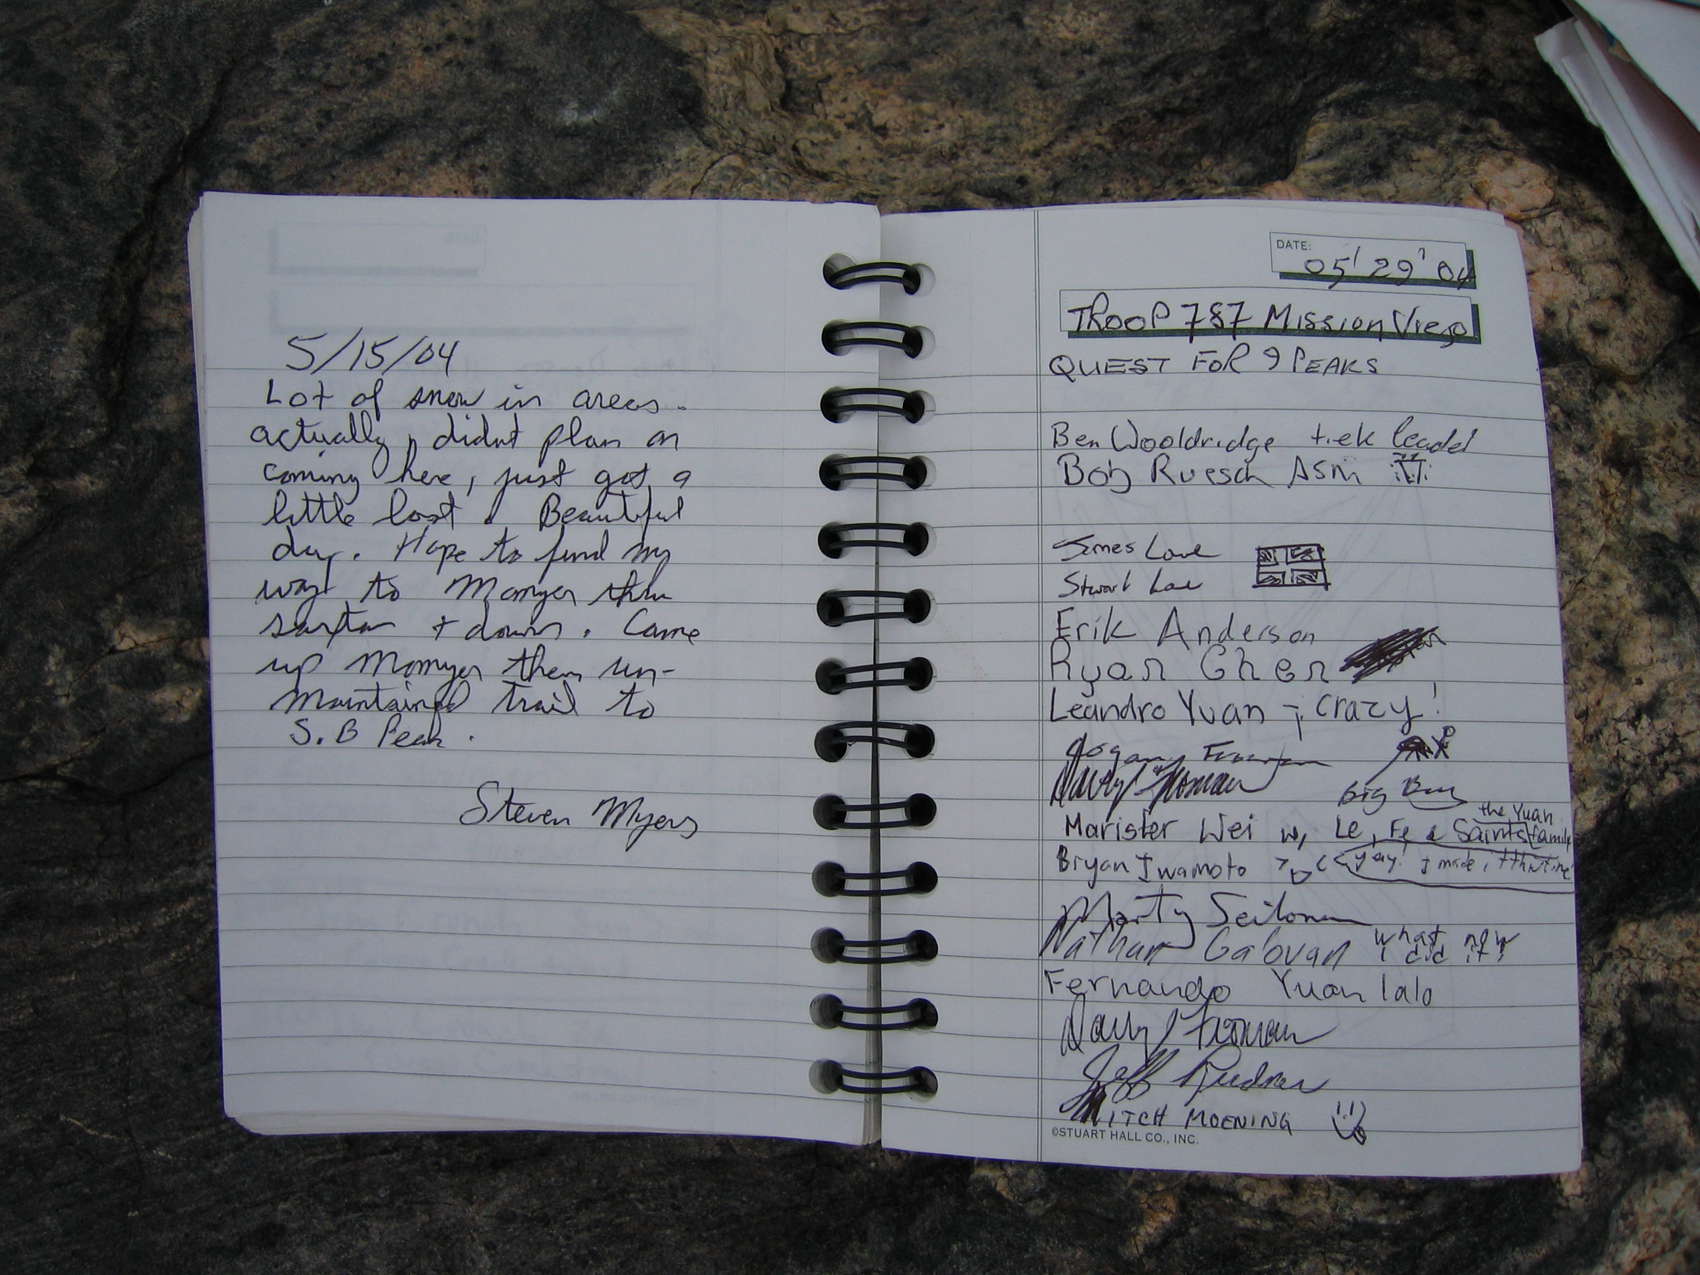 5/15/04
Lot of snow in areas.
actually, didnt plan on
coming here, just got a
little lost. Beautiful
day. Hope to find my
way to Momyer then
+ down. Came
up Momyer then un-
maintained trail to
S.B Peak.
Steven Myers
DATE:
05' 29' 04
TROOP 787 Mission Viejo
QUEST FOR 9 PEAKS
Ben Wooldridge trek leader
Bob Ruesch ASM
James Love
Stuart Love
Erik Anderson
Ryan Chen
Leandro Yuan - ¡ crazy!
Big Boy
the Yuan
Marister Wei w, Le, Fe & Saints family
Bryan Iwamoto yay! I made it
Marty
Nathan Galovan what now
i did it!
Fernando Yuan lalo
Jeff
MITCH MOENING
©STUART HALL CO., INC.